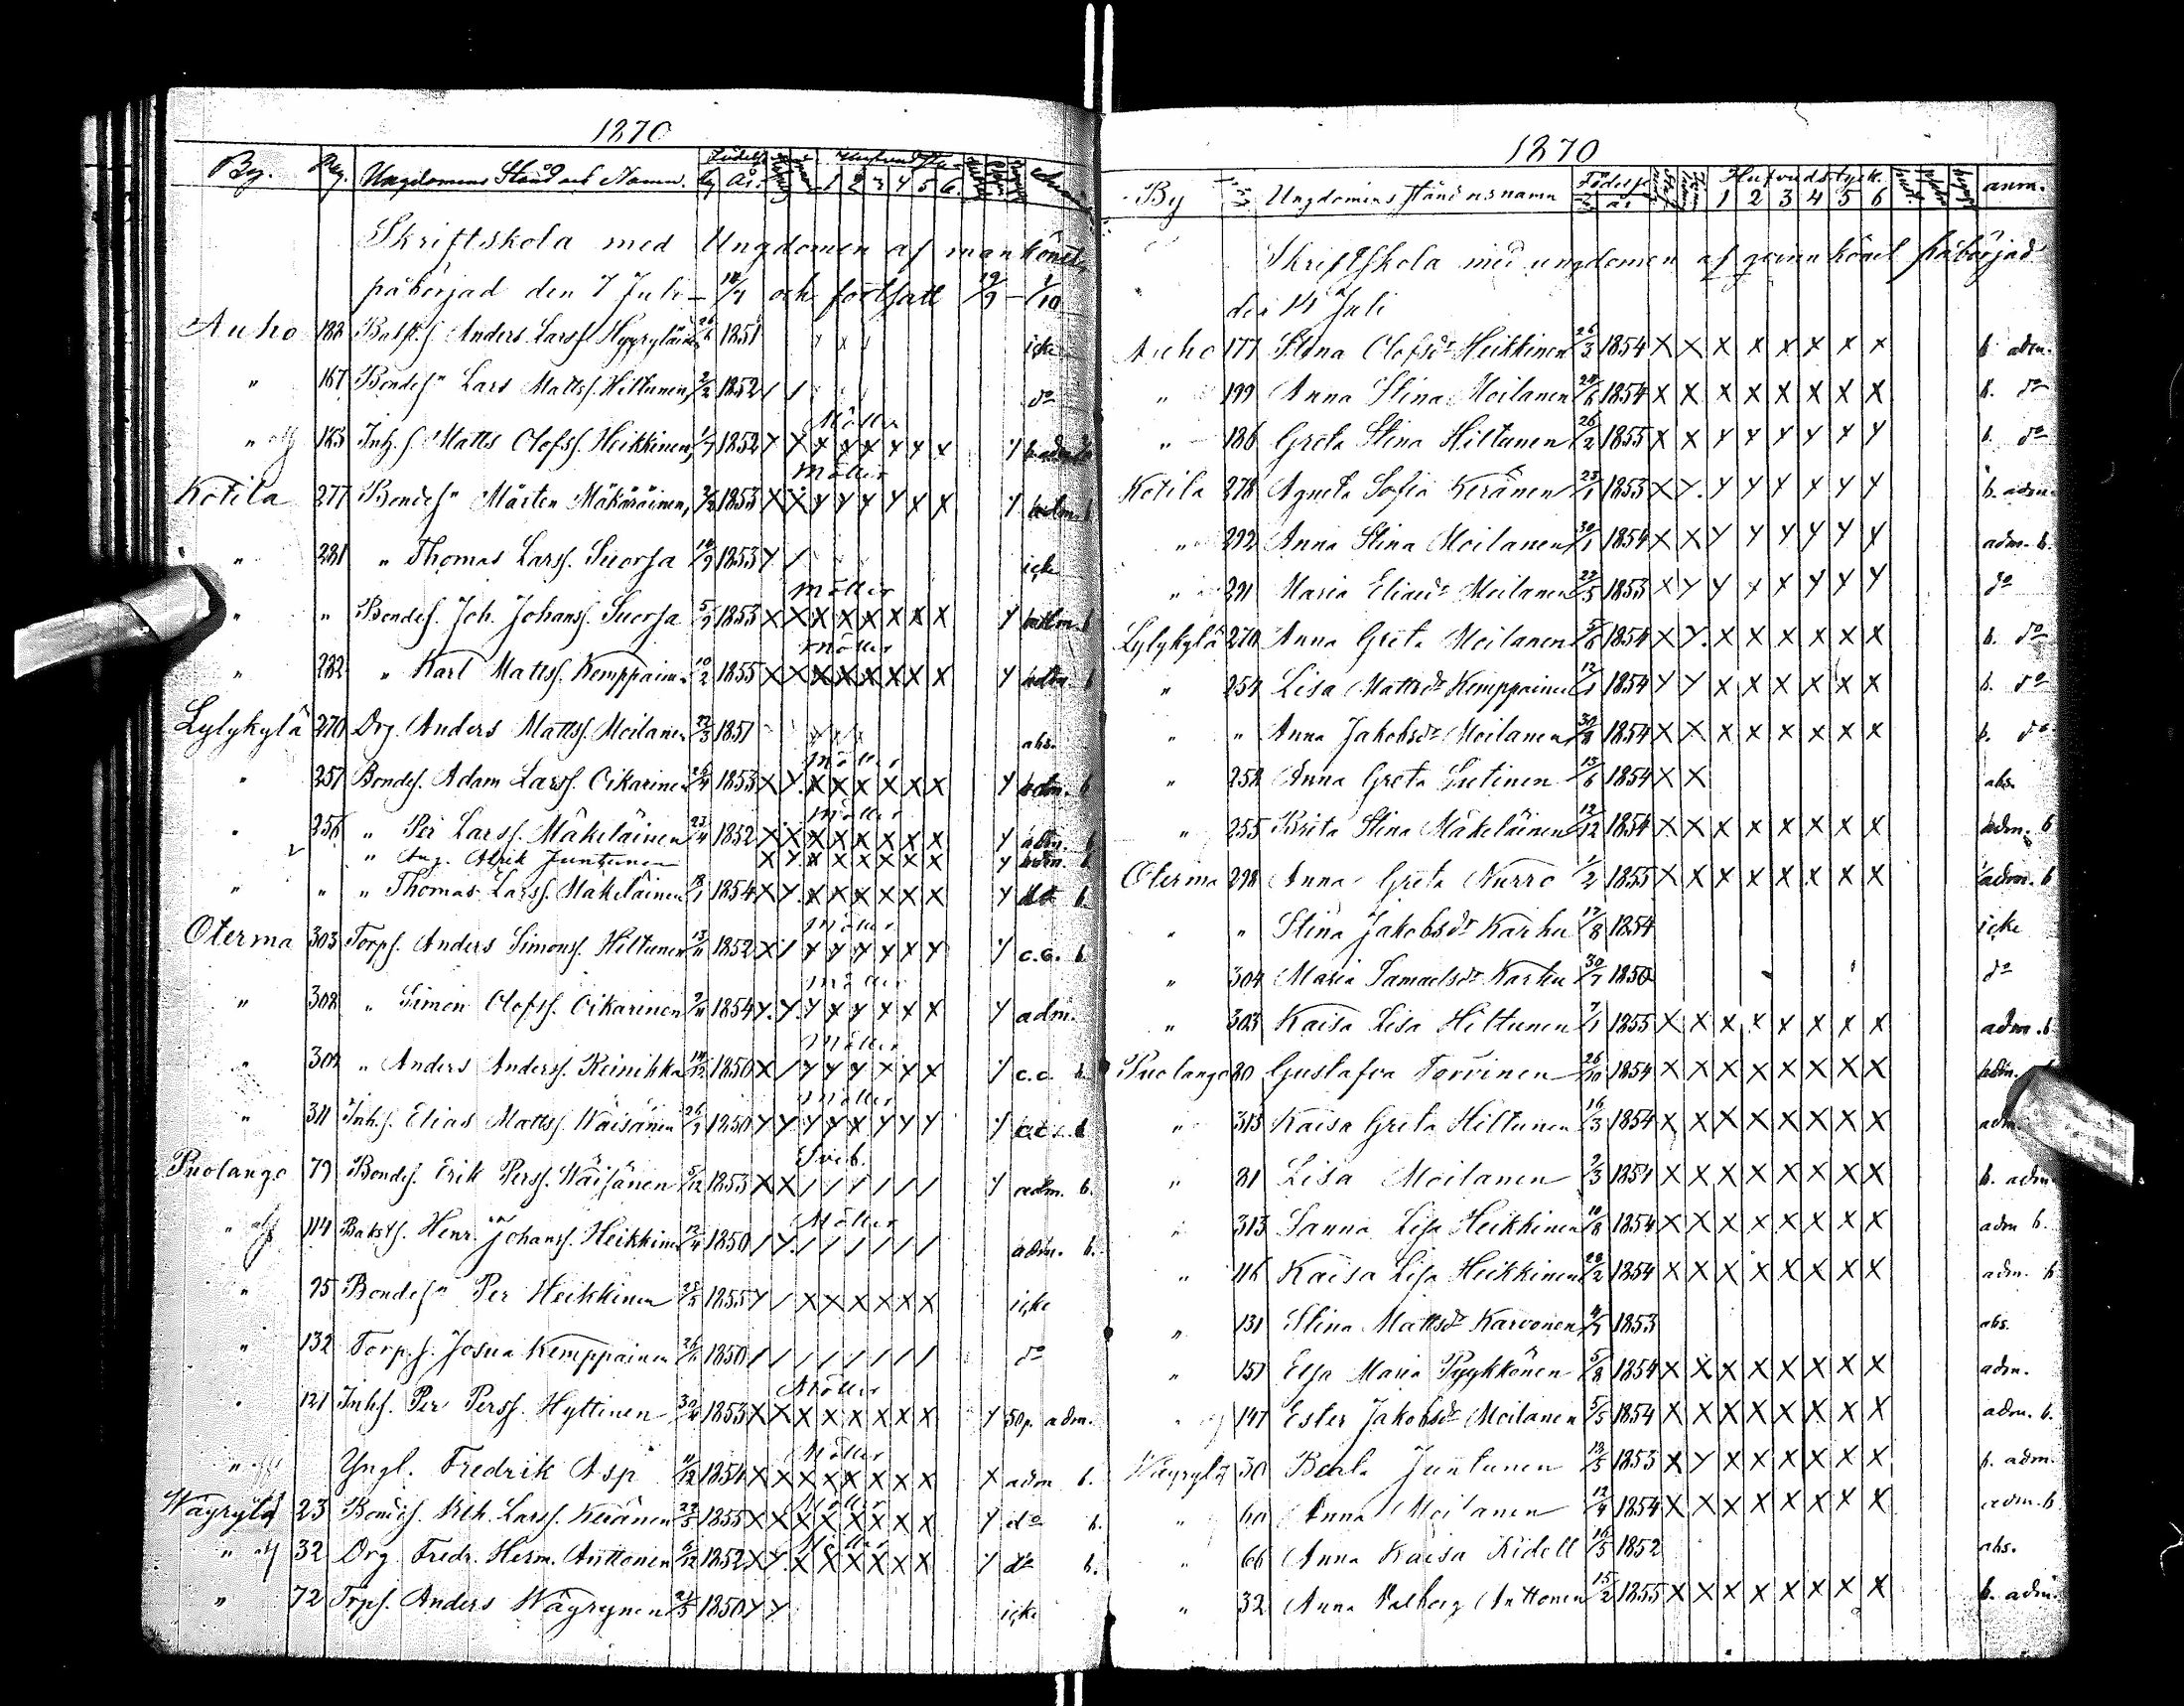 1870
By. Pag. Ungdomens Stånd och Namn. Födelse År. 1 2 3 4 5 6.
Skriftskola med Ungdomen af mankönet
påbörjad den 7 Juli – och fortsatt 19/9 – 1/10
Auho 188 Anders Larss. 1851 icke
" 167 Bondes. Lars Mattss. Hiltunen, 2/2 1852 / / do
Möller
" 183 Inh.s. Matts Olofss. Heikkinen, 1852 Y X X Y X Y Y X
Möller
Kotila 277 Bondes. Mårten Mäkäräinen, 1853 X X Y Y Y Y X X
" 281 " Thomas Larss. Suorsa 1853 Y / icke
Möller
" " Bondes. Joh. Johanss. Suorsa 5/7 1853 X X X X X X X X
Möller
" 282 " Karl Mattss. Kemppainen 10/2 1855 X X X X X X X X
Lylykylä 270 Drg. Anders Mattss. Moilanen 22/3 1851 abs.
Möller
" 257 Bondes. Adam Larss. Oikarinen 1853 X Y X X X X X X
Möller
" 256 " Per Larss. Mäkeläinen 1852 X X X X X X X X
" Aug. Alrik Juntunen X Y X X X X X X
" " " Thomas Larss. Mäkeläinen 1854 X Y X X X X X X
Möller
Oterma 303 Torps. Anders Simonss. Hiltunen 1852 X / Y Y Y Y Y Y c.c. b
Möller
" 308 " Simon Olofss. Oikarinen 1854 Y Y Y X Y X X X Y adm.
Möller
" 304 " Anders Anderss. Keinikka 1850 X / Y Y Y X Y X c.c.
Möller
" 311 Inh.s. Elias Mattss. Wäisänen 1850 Y Y Y Y X Y Y Y
Sveb.
Puolango 79 Bondes. Erik Perss. Wäisänen 5/12 1853 X X / / / / / / Y adm. b.
Möller
" 114 Henr. Johanss. Heikkinen 1850 / Y / / / / / / adm. b.
" 75 Bondes. Per Heikkinen 1855 Y / X X X X X X icke
" 132 Torp.s. Josua Kemppainen 1850 / / / / / / / / do
Möller
" 121 Inh.s. Per Perss. Hyttinen 1853 X X X X X X X X Y adm.
Möller
" Yngl. Fredrik Asp 1854 X X X X X X X X X adm b.
Möller
Wäyrylä 23 Bondes. Larss. Keränen 1855 X X X X X X X X Y do b.
Möller
" 32 Drg. Fredr. Herm. Anttonen 1852 X Y X X X X X X Y do b.
" 72 Torps. Anders Wäyrynen 1850 Y Y icke
1870
By Ungdomens stånd och namn Födelse år Hufvudstyck. 1 2 3 4 5 6 anm.
Skriftskola med ungdomen af qvinnkönet påbörjad
den 14 Juli
Auho 177 Stina Olofsdr Heikkinen 26/3 1854 X X X X X X X X b adm.
" 199 Anna Stina Moilanen 1854 X X X X X X X X b. do
" 186 Greta Stina Hiltunen 26/2 1855 X X Y Y Y Y Y Y b. do
Kotila 278 Agneta Sofia Keränen 23/1 1853 X Y Y Y Y Y Y Y b. adm.
" 292 Anna Stina Moilanen 30/1 1854 X X Y Y Y Y Y Y adm. b.
" 291 Maria Eliaedr Moilanen 1853 X Y Y X X Y Y Y do
Lylykylä 270 Anna Greta Moilanen 1854 X Y X X X X X X b. do
" 254 Lisa Mattsdr Kemppainen 12/1 1854 Y Y X X X X X X b. do
" " Anna Jakobsdr Moilanen 30/8 1854 X X X X X X X X b. do
" 252 Anna Greta Sutinen 1854 X X abs.
" 255 Brita Stina Mäkeläinen 12/12 1854 X X X X X X X X adm. b
Oterma 298 Anna Greta Nurro 1/2 1855 X X X X X X X X adm. b
" " Stina Jakobsdr Karhu 1854 icke
" 304 Maria Samuelsdr Karhu 30/7 1850 do
" 303 Kaisa Lisa Hiltunen 7/1 1855 X X X X X X X X adm. b
Puolango 80 Gustafva Torvinen 26/10 1854 X X X X X X X X adm.
" 313 Kaisa Greta Hiltunen 16/3 1854 X X X X X X X X adm.
" 81 Lisa Moilanen 2/3 1854 X X X X X X X X b. adm
" 313 Sanna Lisa Heikkinen 10/8 1854 X X X X X X X X adm b.
" 116 Kaisa Lisa Heikkinen 28/2 1854 X X X X X X X X adm. b
" 131 Stina Mattsdr Karvonen 1853 abs.
" 157 Elsa Maria Pyykkönen 5/8 1854 X X X X X X X X adm.
" 147 Ester Jakobsdr Moilanen 5/5 1854 X X X X X X X X adm. b.
Wäyrylä 30 Beata Juntunen 1853 X Y X X X X X X b. adm.
" 60 Anna Moilanen 1854 X X X X X X X X adm. b.
" 66 Anna Kaisa Kidell 16/5 1852 abs.
" 32 Anna Valborg Anttonen 15/2 1855 X X X X X X X X b. adm.